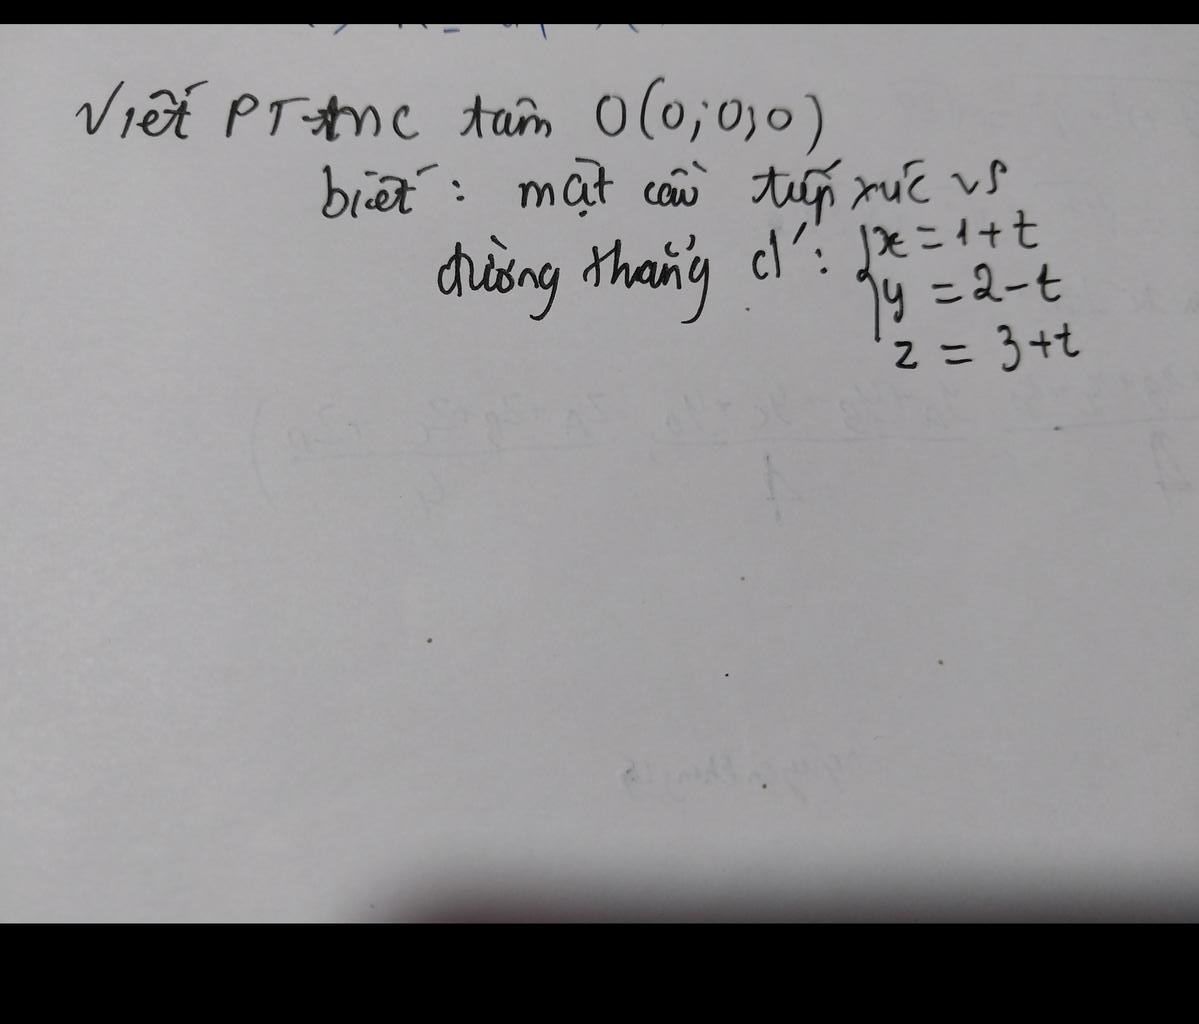 Viết PT mc tâm O(0;0;0)
biết: mặt cầu tiếp xúc vs
đường thẳng d': { x = 1 + t
y = 2 - t
z = 3 + t